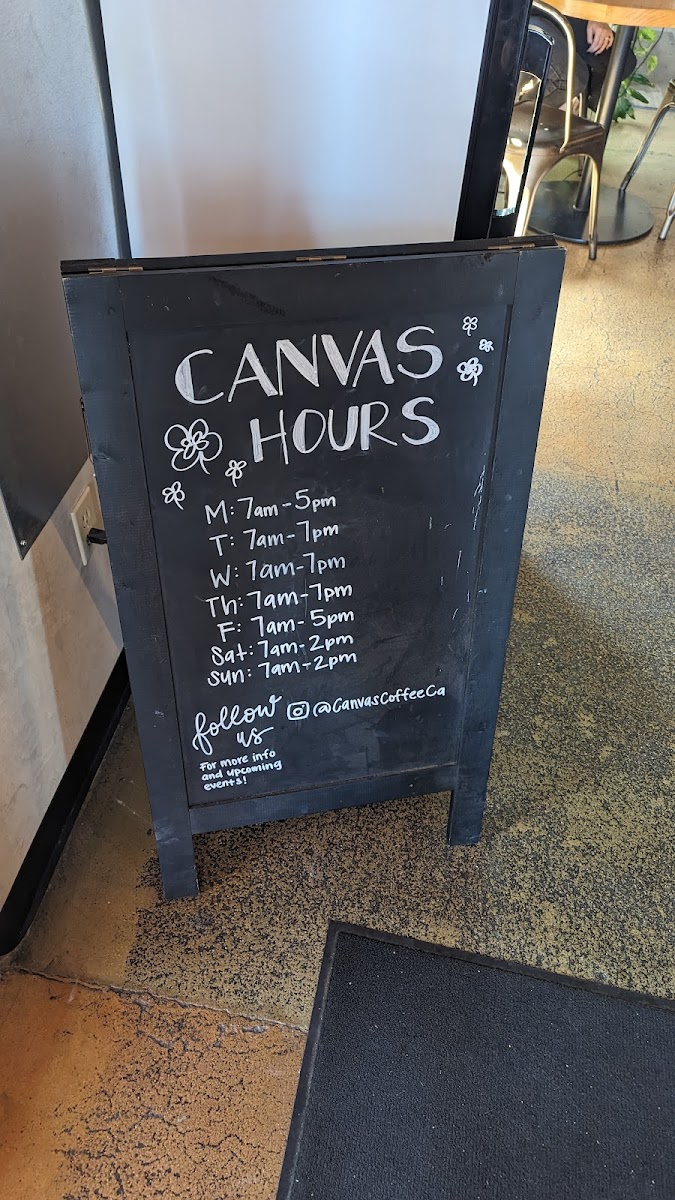 CANVAS
HOURS
M: 7am-5pm
T: 7am-7pm
W: 7am-7pm
Th: 7am-7pm
F: 7am-5pm
Sat: 7am-2pm
Sun: 7am-2pm
follow us @CanvasCoffeeCa
For more info
and upcoming
events!